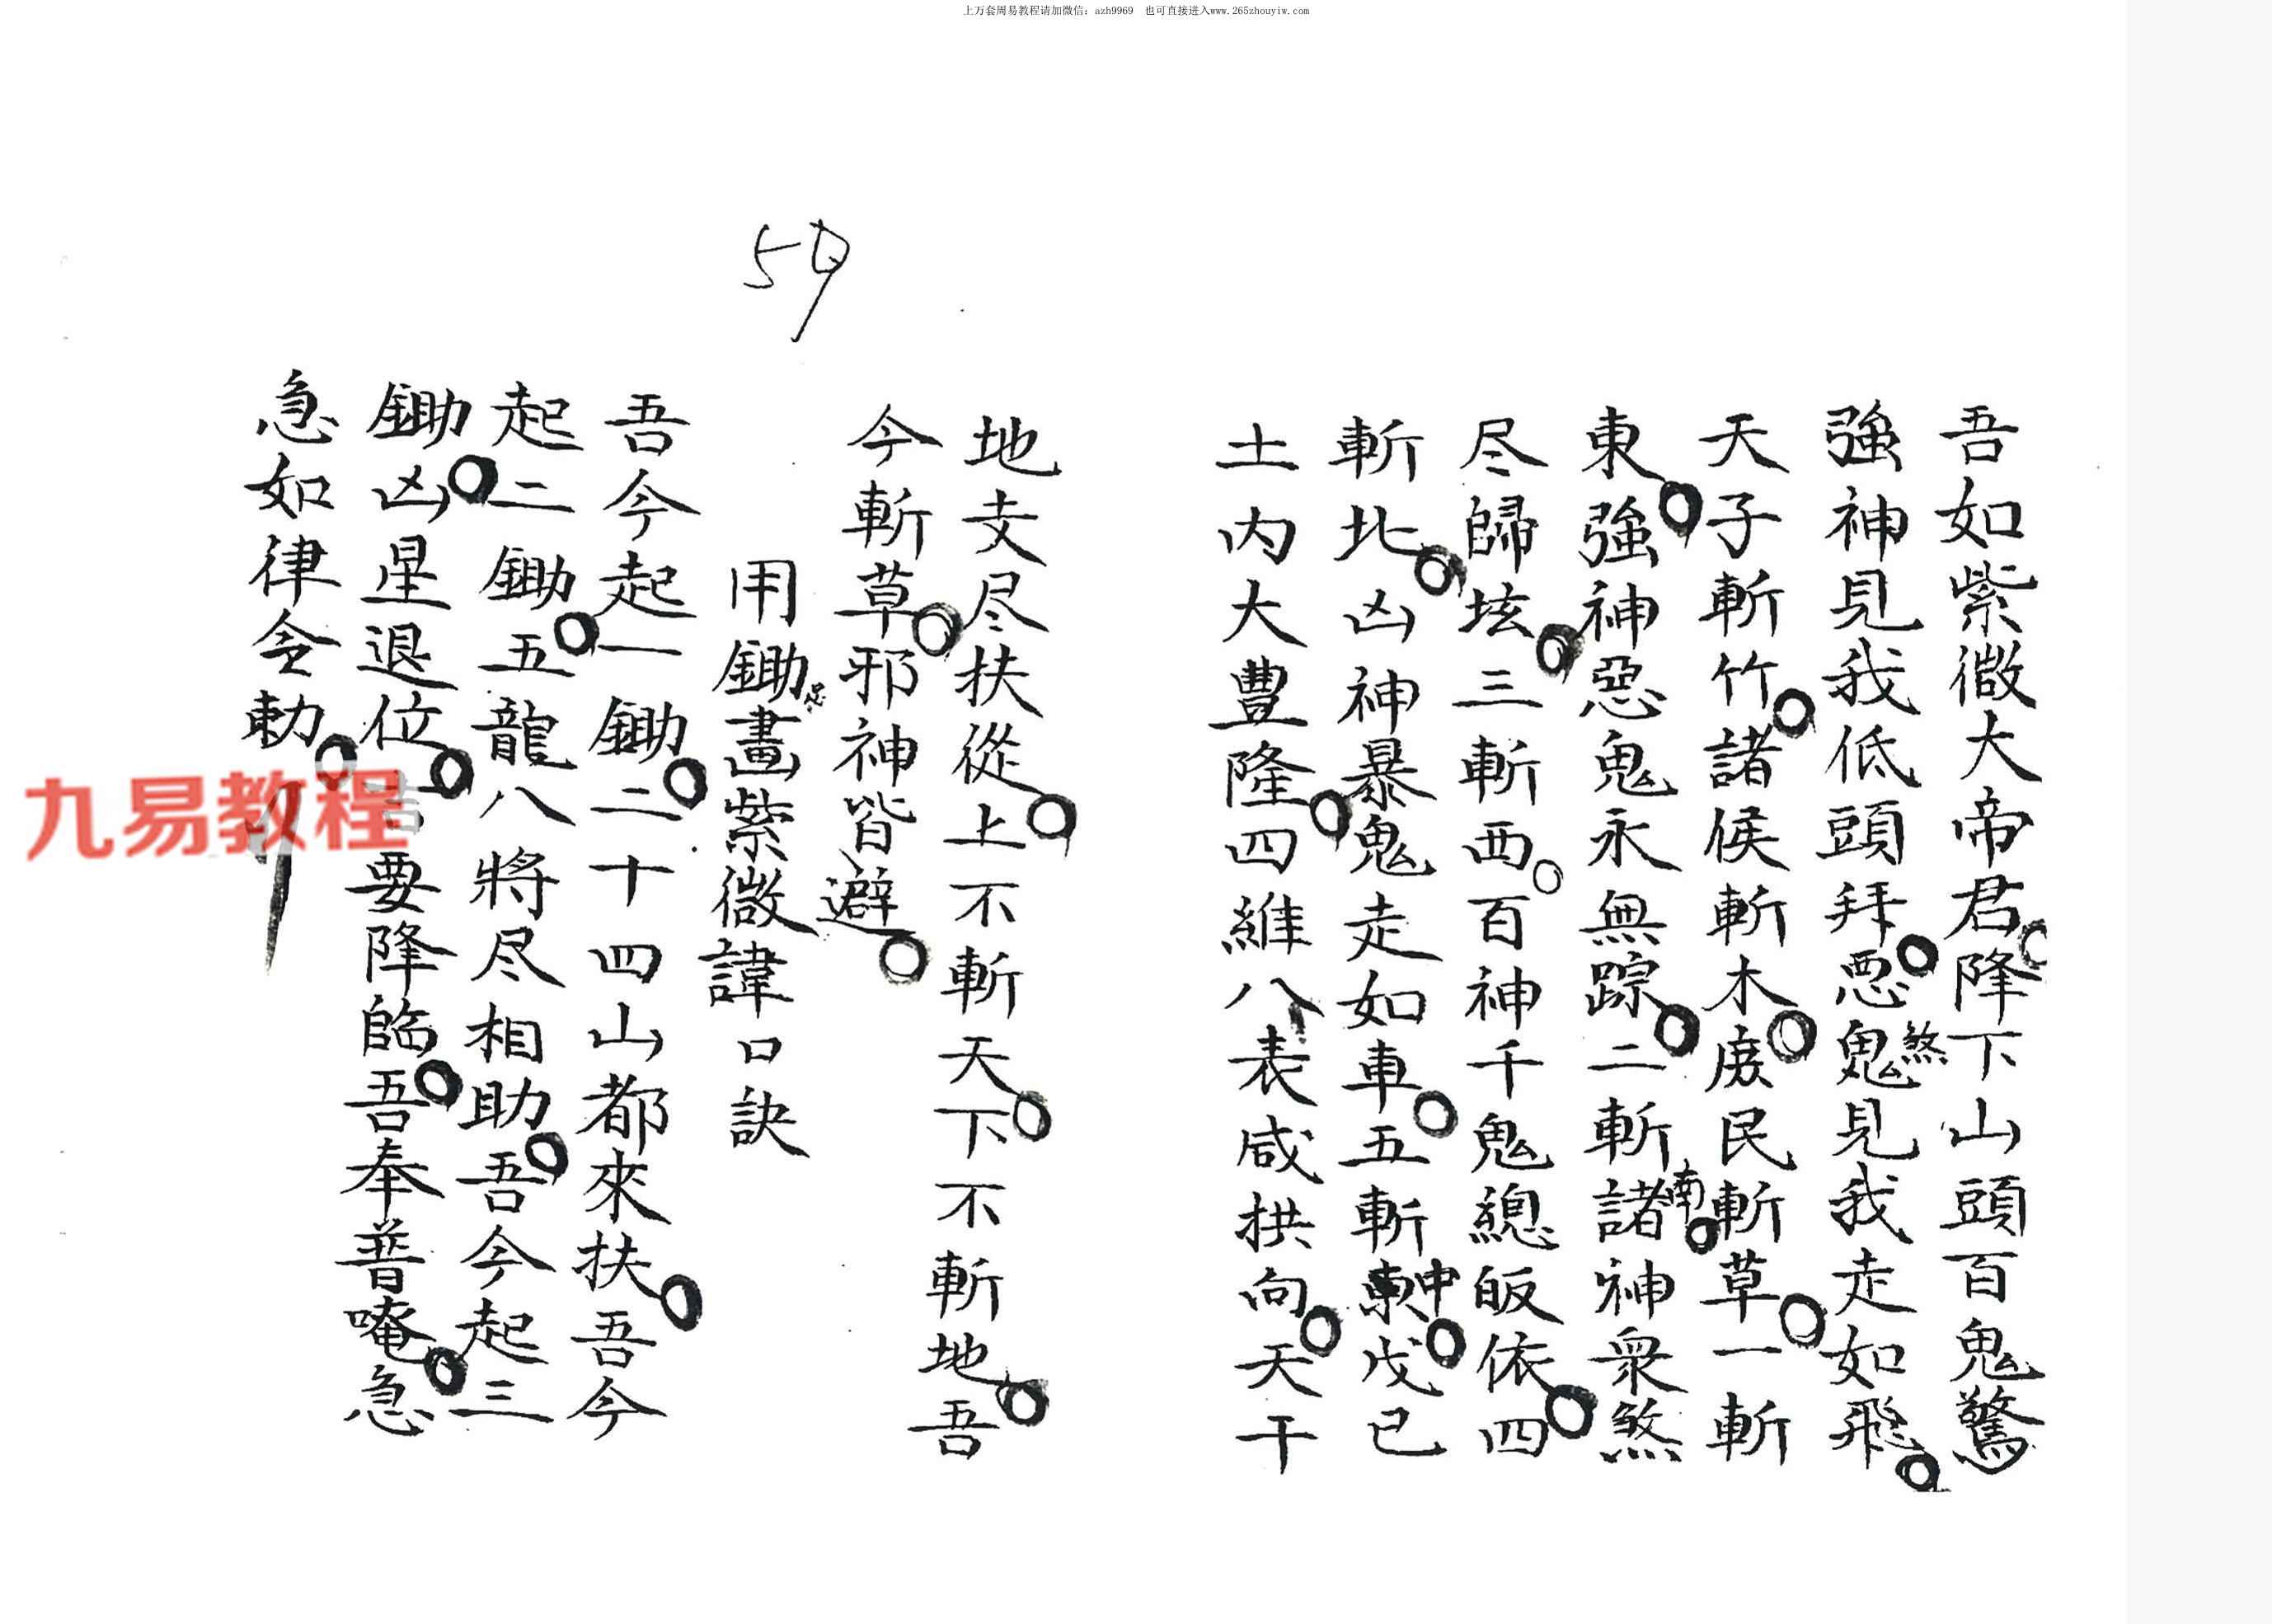 上万套周易教程请加微信：azh9969 也可直接进入www.265zhouyiw.com
59
吾如紫微大帝君降下山頭百鬼驚
強神見我低頭拜惡鬼煞見我走如飛
天子斬竹諸侯斬木庻民斬草一斬
東強神惡鬼永無踪二斬南諸神衆煞
尽歸垓三斬西百神千鬼總皈依四
斬北凶神暴鬼走如車五斬中戊己
土内大豐隆四維八表咸拱向天干
地支尽扶從上不斬天下不斬地吾
今斬草邪神皆避
用鋤畫紫微諱口訣
吾今起一鋤二十四山都來扶吾今
起二鋤五龍八將尽相助吾今起三
鋤凶星退位吉要降臨吾奉普唵急
急如律令勅
九易教程